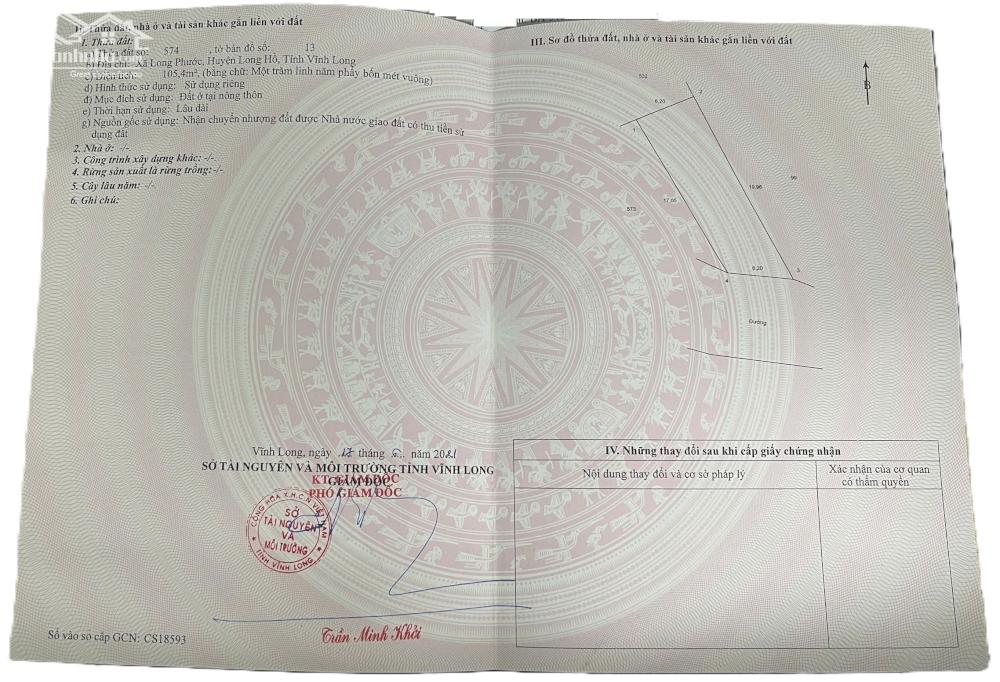 II. Thửa đất, nhà ở và tài sản khác gắn liền với đất
1. Thửa đất:
Thửa đất số: 574 , tờ bản đồ số: 13
b) Địa chỉ: Xã Long Phước, Huyện Long Hồ, Tỉnh Vĩnh Long
c) Diện tích: 105,4m², (bằng chữ: Một trăm linh năm phẩy bốn mét vuông)
d) Hình thức sử dụng: Sử dụng riêng
đ) Mục đích sử dụng: Đất ở tại nông thôn
e) Thời hạn sử dụng: Lâu dài
g) Nguồn gốc sử dụng: Nhận chuyển nhượng đất được Nhà nước giao đất có thu tiền sử
dụng đất
2. Nhà ở: -/-
3. Công trình xây dựng khác: -/-.
4. Rừng sản xuất là rừng trồng:-/-
5. Cây lâu năm: -/-
6. Ghi chú:
Vĩnh Long, ngày 17 tháng năm 2021
SỞ TÀI NGUYÊN VÀ MÔI TRƯỜNG TỈNH VĨNH LONG
GIÁM ĐỐC
KT. GIÁM ĐỐC
PHÓ GIÁM ĐỐC
CỘNG HÒA X.H.C.N VIỆT NAM
SỞ
TÀI NGUYÊN
VÀ
MÔI TRƯỜNG
TỈNH VĨNH LONG
Trần Minh Khởi
Số vào sổ cấp GCN: CS18593
III. Sơ đồ thửa đất, nhà ở và tài sản khác gắn liền với đất
B
532
6,20
2
1
99
19,96
573
17,05
6,20
3
4
Đường
IV. Những thay đổi sau khi cấp giấy chứng nhận
Nội dung thay đổi và cơ sở pháp lý
Xác nhận của cơ quan
có thẩm quyền